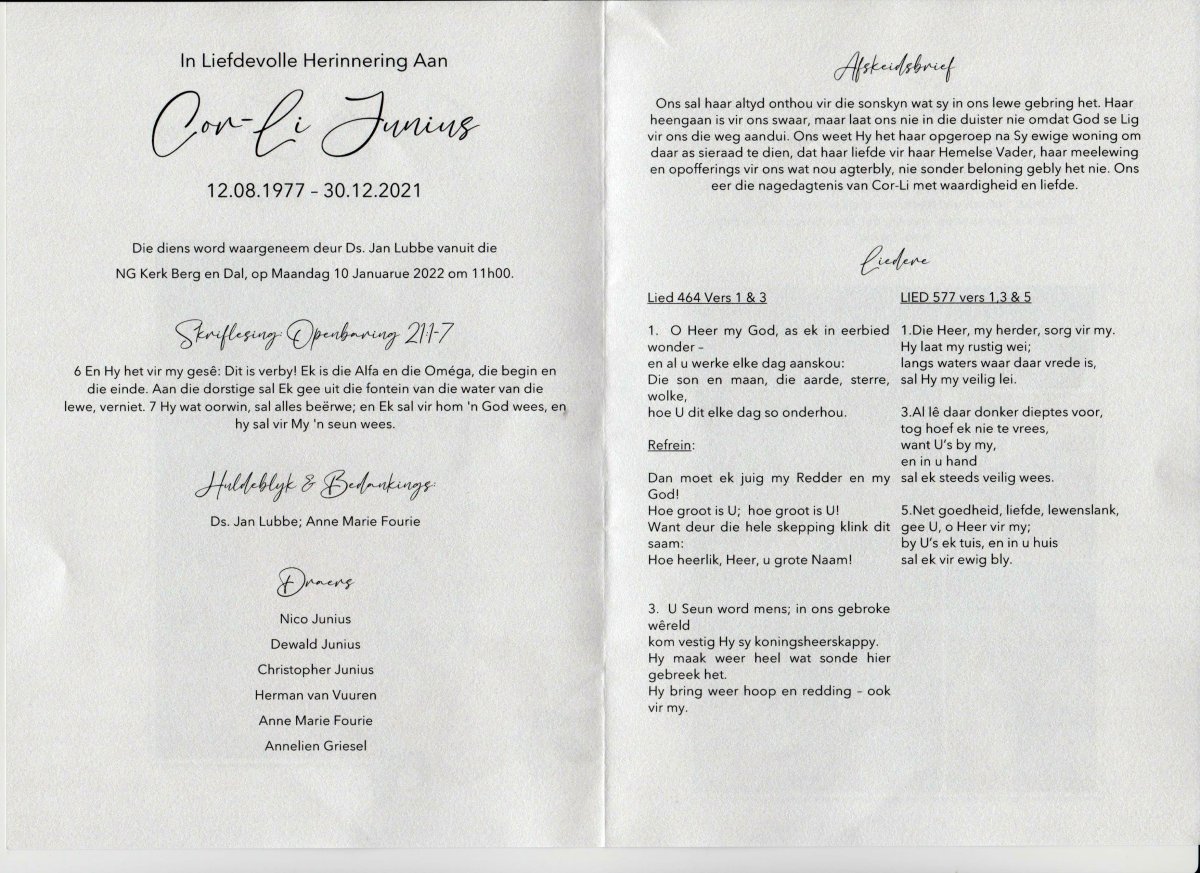 In Liefdevolle Herinnering Aan
Cor-Li Junius
12.08.1977 – 30.12.2021
Die diens word waargeneem deur Ds. Jan Lubbe vanuit die
NG Kerk Berg en Dal, op Maandag 10 Januarue 2022 om 11h00.
Skriflesing: Openbaring 21:1-7
6 En Hy het vir my gesê: Dit is verby! Ek is die Alfa en die Oméga, die begin en
die einde. Aan die dorstige sal Ek gee uit die fontein van die water van die
lewe, verniet. 7 Hy wat oorwin, sal alles beërwe; en Ek sal vir hom 'n God wees, en
hy sal vir My 'n seun wees.
Huldeblyk & Bedankings:
Ds. Jan Lubbe; Anne Marie Fourie
Draers
Nico Junius
Dewald Junius
Christopher Junius
Herman van Vuuren
Anne Marie Fourie
Annelien Griesel
Afskeidsbrief
Ons sal haar altyd onthou vir die sonskyn wat sy in ons lewe gebring het. Haar
heengaan is vir ons swaar, maar laat ons nie in die duister nie omdat God se Lig
vir ons die weg aandui. Ons weet Hy het haar opgeroep na Sy ewige woning om
daar as sieraad te dien, dat haar liefde vir haar Hemelse Vader, haar meelewing
en opofferings vir ons wat nou agterbly, nie sonder beloning gebly het nie. Ons
eer die nagedagtenis van Cor-Li met waardigheid en liefde.
Liedere
Lied 464 Vers 1 & 3
1. O Heer my God, as ek in eerbied
wonder –
en al u werke elke dag aanskou:
Die son en maan, die aarde, sterre,
wolke,
hoe U dit elke dag so onderhou.
Refrein:
Dan moet ek juig my Redder en my
God!
Hoe groot is U; hoe groot is U!
Want deur die hele skepping klink dit
saam:
Hoe heerlik, Heer, u grote Naam!
3. U Seun word mens; in ons gebroke
wêreld
kom vestig Hy sy koningsheerskappy.
Hy maak weer heel wat sonde hier
gebreek het.
Hy bring weer hoop en redding – ook
vir my.
LIED 577 vers 1,3 & 5
1.Die Heer, my herder, sorg vir my.
Hy laat my rustig wei;
langs waters waar daar vrede is,
sal Hy my veilig lei.
3.Al lê daar donker dieptes voor,
tog hoef ek nie te vrees,
want U's by my,
en in u hand
sal ek steeds veilig wees.
5.Net goedheid, liefde, lewenslank,
gee U, o Heer vir my;
by U's ek tuis, en in u huis
sal ek vir ewig bly.